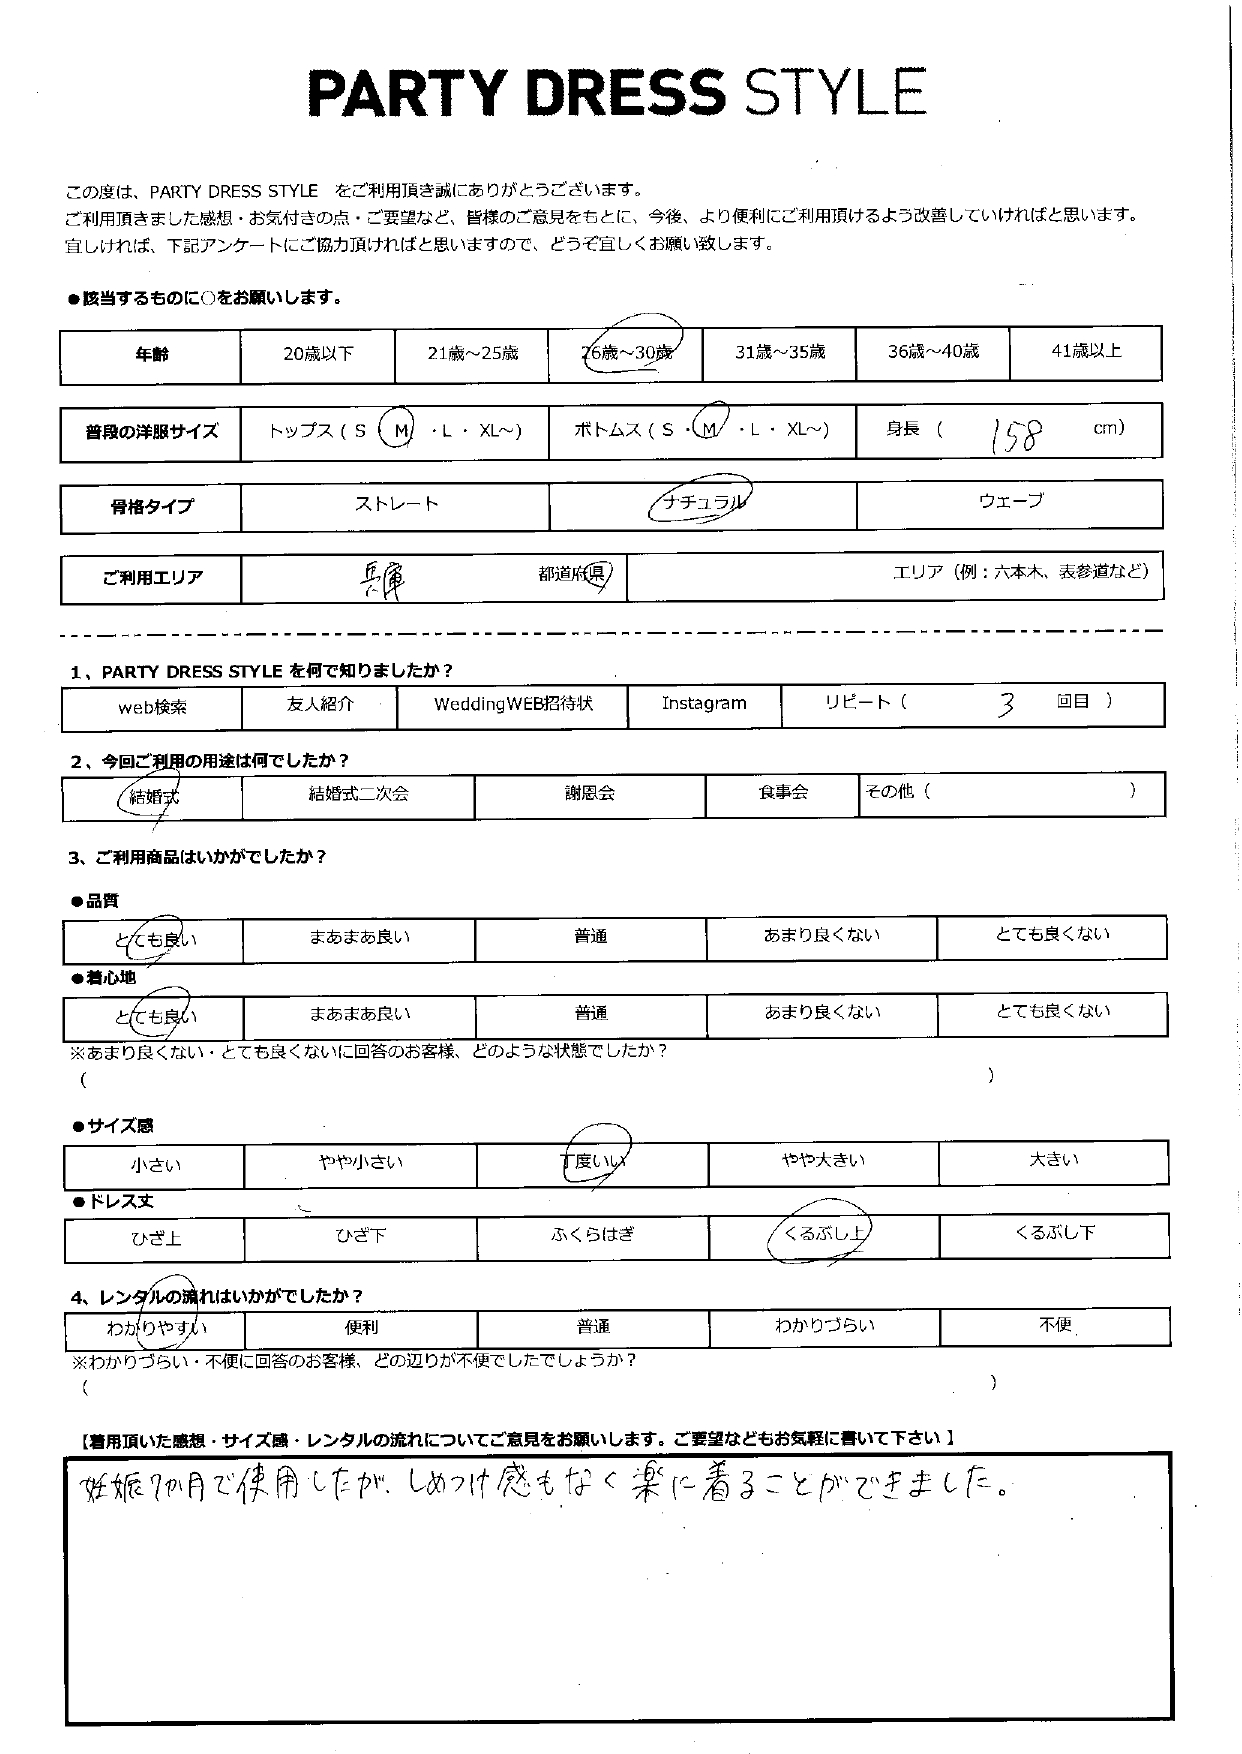 PARTY DRESS STYLE
この度は、PARTY DRESS STYLE をご利用頂き誠にありがとうございます。
ご利用頂きました感想・お気付きの点・ご要望など、皆様のご意見をもとに、今後、より便利にご利用頂けるよう改善していければと思います。
宜しければ、下記アンケートにご協力頂ければと思いますので、どうぞ宜しくお願い致します。
●該当するものに○をお願いします。
年齢 20歳以下 21歳～25歳 26歳～30歳 31歳～35歳 36歳～40歳 41歳以上
普段の洋服サイズ トップス ( S ・ M ・L ・ XL～) ボトムス ( S ・ M ・L ・ XL～) 身長 ( 158 cm)
骨格タイプ ストレート ナチュラル ウェーブ
ご利用エリア 兵庫 都道府県 エリア（例：六本木、表参道など）
1、PARTY DRESS STYLE を何で知りましたか？
web検索 友人紹介 WeddingWEB招待状 Instagram リピート（ 3 回目 ）
2、今回ご利用の用途は何でしたか？
結婚式 結婚式二次会 謝恩会 食事会 その他（ ）
3、ご利用商品はいかがでしたか？
●品質
とても良い まあまあ良い 普通 あまり良くない とても良くない
●着心地
とても良い まあまあ良い 普通 あまり良くない とても良くない
※あまり良くない・とても良くないに回答のお客様、どのような状態でしたか？
( )
●サイズ感
小さい やや小さい 丁度いい やや大きい 大きい
●ドレス丈
ひざ上 ひざ下 ふくらはぎ くるぶし上 くるぶし下
4、レンタルの流れはいかがでしたか？
わかりやすい 便利 普通 わかりづらい 不便
※わかりづらい・不便に回答のお客様、どの辺りが不便でしたでしょうか？
( )
【着用頂いた感想・サイズ感・レンタルの流れについてご意見をお願いします。ご要望などもお気軽に書いて下さい】
妊娠7か月で使用したが、しめつけ感もなく楽に着ることができました。